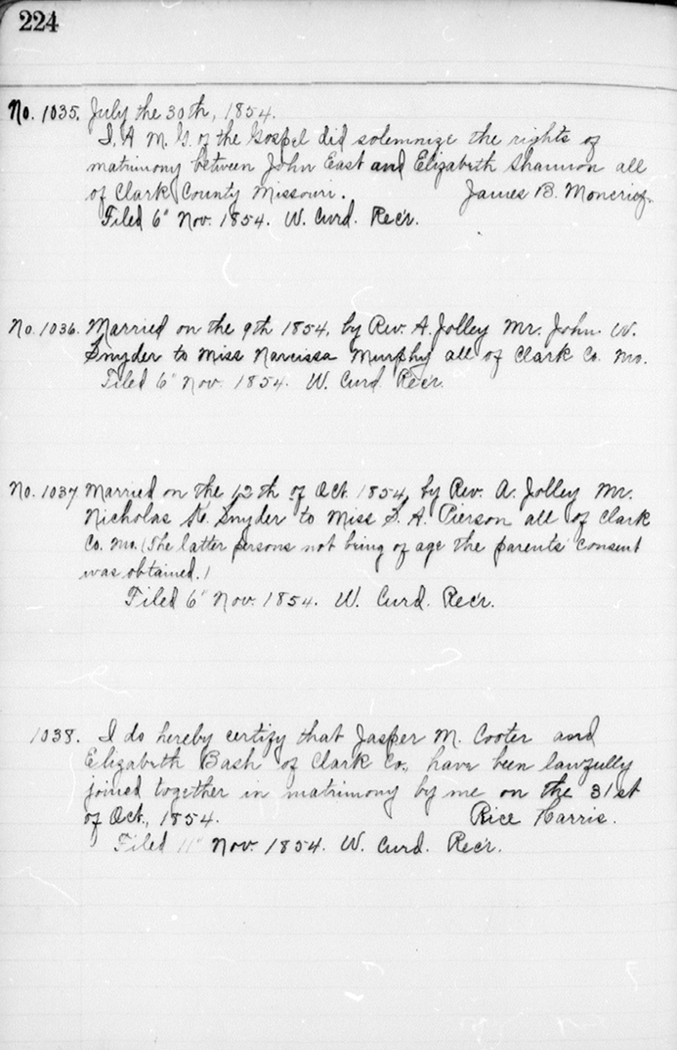 224
No. 1035. July the 30th, 1854.
I. A M. G. of the Gospel did solemnize the rights of
matrimony between John East and Elizabeth Shannon all
of Clark County Missouri. James B. Moncrief.
Filed 6" Nov. 1854. W. Curd. Rec'r.
No. 1036. Married on the 9th 1854, by Rev. A. Jolley Mr. John W.
Snyder to Miss Narcissa Murphy all of Clark Co. Mo.
Filed 6" Nov. 1854. W. Curd Rec'r.
No. 1037. Married on the 12th of Oct. 1854, by Rev. A. Jolley Mr.
Nicholas K. Snyder to Miss S. A. Pierson all of Clark
Co. Mo. (The latter persons not being of age the parents' consent
was obtained.)
Filed 6" Nov. 1854. W. Curd. Rec'r.
1038. I do hereby certify that Jasper M. Cooter and
Elizabeth Bash of Clark Co., have been lawfully
joined together in matrimony by me on the 31st
of Oct., 1854. Rice Harris.
Filed 11" Nov. 1854. W. Curd. Rec'r.